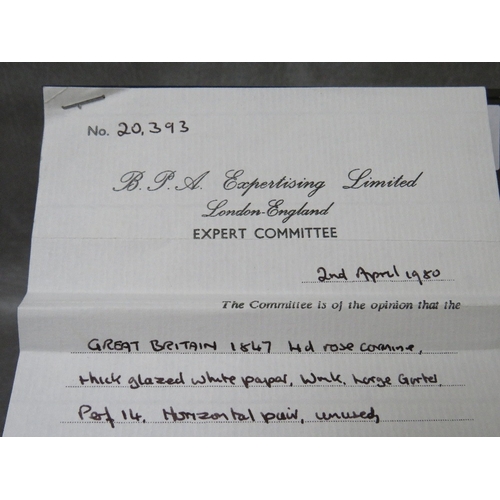 No. 20,393
B. P. A. Expertising Limited
London-England
EXPERT COMMITTEE
2nd April 1980
The Committee is of the opinion that the
GREAT BRITAIN 1847 4d rose carmine,
thick glazed white paper, Wmk. Large Garter,
Perf 14. Horizontal pair, unused,